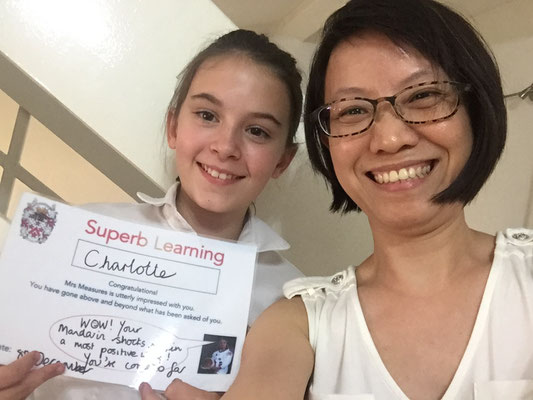 Superb Learning
Charlotte
Congratulations!
Mrs Measures is utterly impressed with you.
You have gone above and beyond what has been asked of you.
WOW! Your
Mandarin shocks in
a most positive way!
You're so far